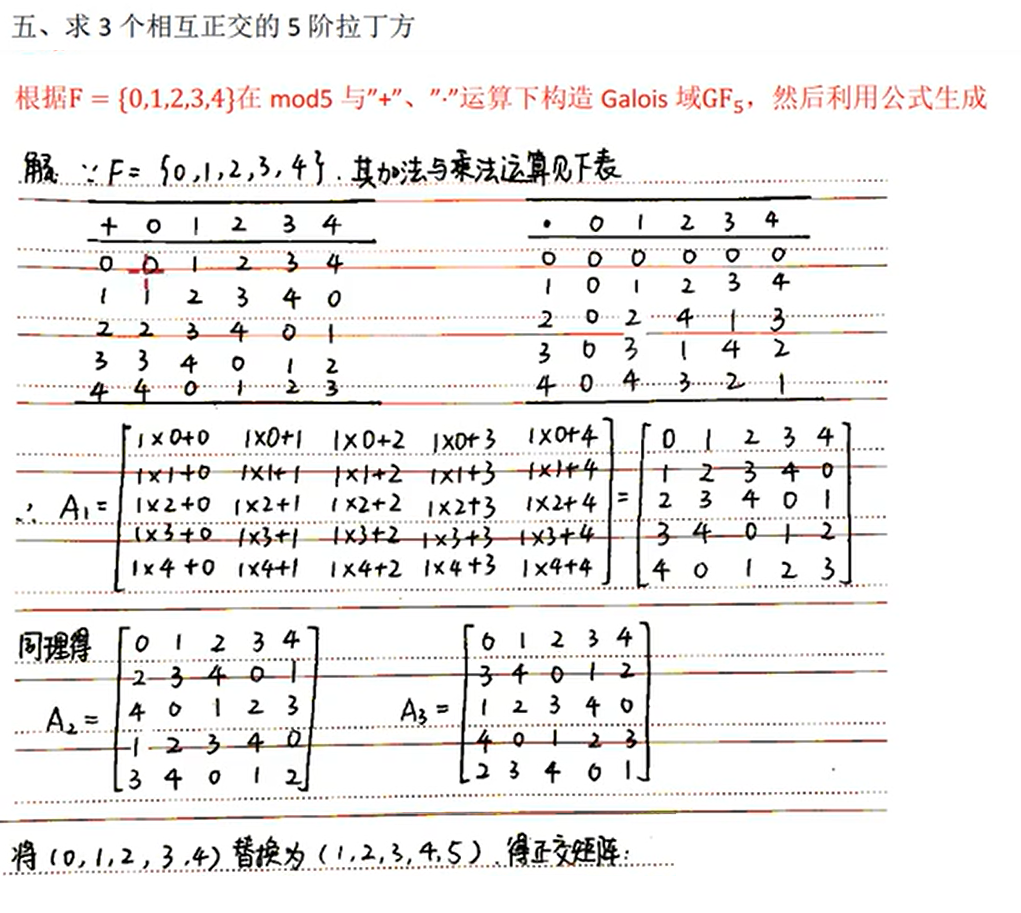 五、求 3 个相互正交的 5 阶拉丁方
根据F = {0,1,2,3,4}在 mod5 与”+”、”·”运算下构造 Galois 域GF₅，然后利用公式生成
解: ∵ F = {0,1,2,3,4}. 其加法与乘法运算见下表
+ 0 1 2 3 4
0 0 1 2 3 4
1 1 2 3 4 0
2 2 3 4 0 1
3 3 4 0 1 2
4 4 0 1 2 3
· 0 1 2 3 4
0 0 0 0 0 0
1 0 1 2 3 4
2 0 2 4 1 3
3 0 3 1 4 2
4 0 4 3 2 1
∴ A₁ =
1×0+0 1×0+1 1×0+2 1×0+3 1×0+4
1×1+0 1×1+1 1×1+2 1×1+3 1×1+4
1×2+0 1×2+1 1×2+2 1×2+3 1×2+4
1×3+0 1×3+1 1×3+2 1×3+3 1×3+4
1×4+0 1×4+1 1×4+2 1×4+3 1×4+4
=
0 1 2 3 4
1 2 3 4 0
2 3 4 0 1
3 4 0 1 2
4 0 1 2 3
同理得
A₂ =
0 1 2 3 4
2 3 4 0 1
4 0 1 2 3
1 2 3 4 0
3 4 0 1 2
A₃ =
0 1 2 3 4
3 4 0 1 2
1 2 3 4 0
4 0 1 2 3
2 3 4 0 1
将 (0,1,2,3,4) 替换为 (1,2,3,4,5). 得正交矩阵: